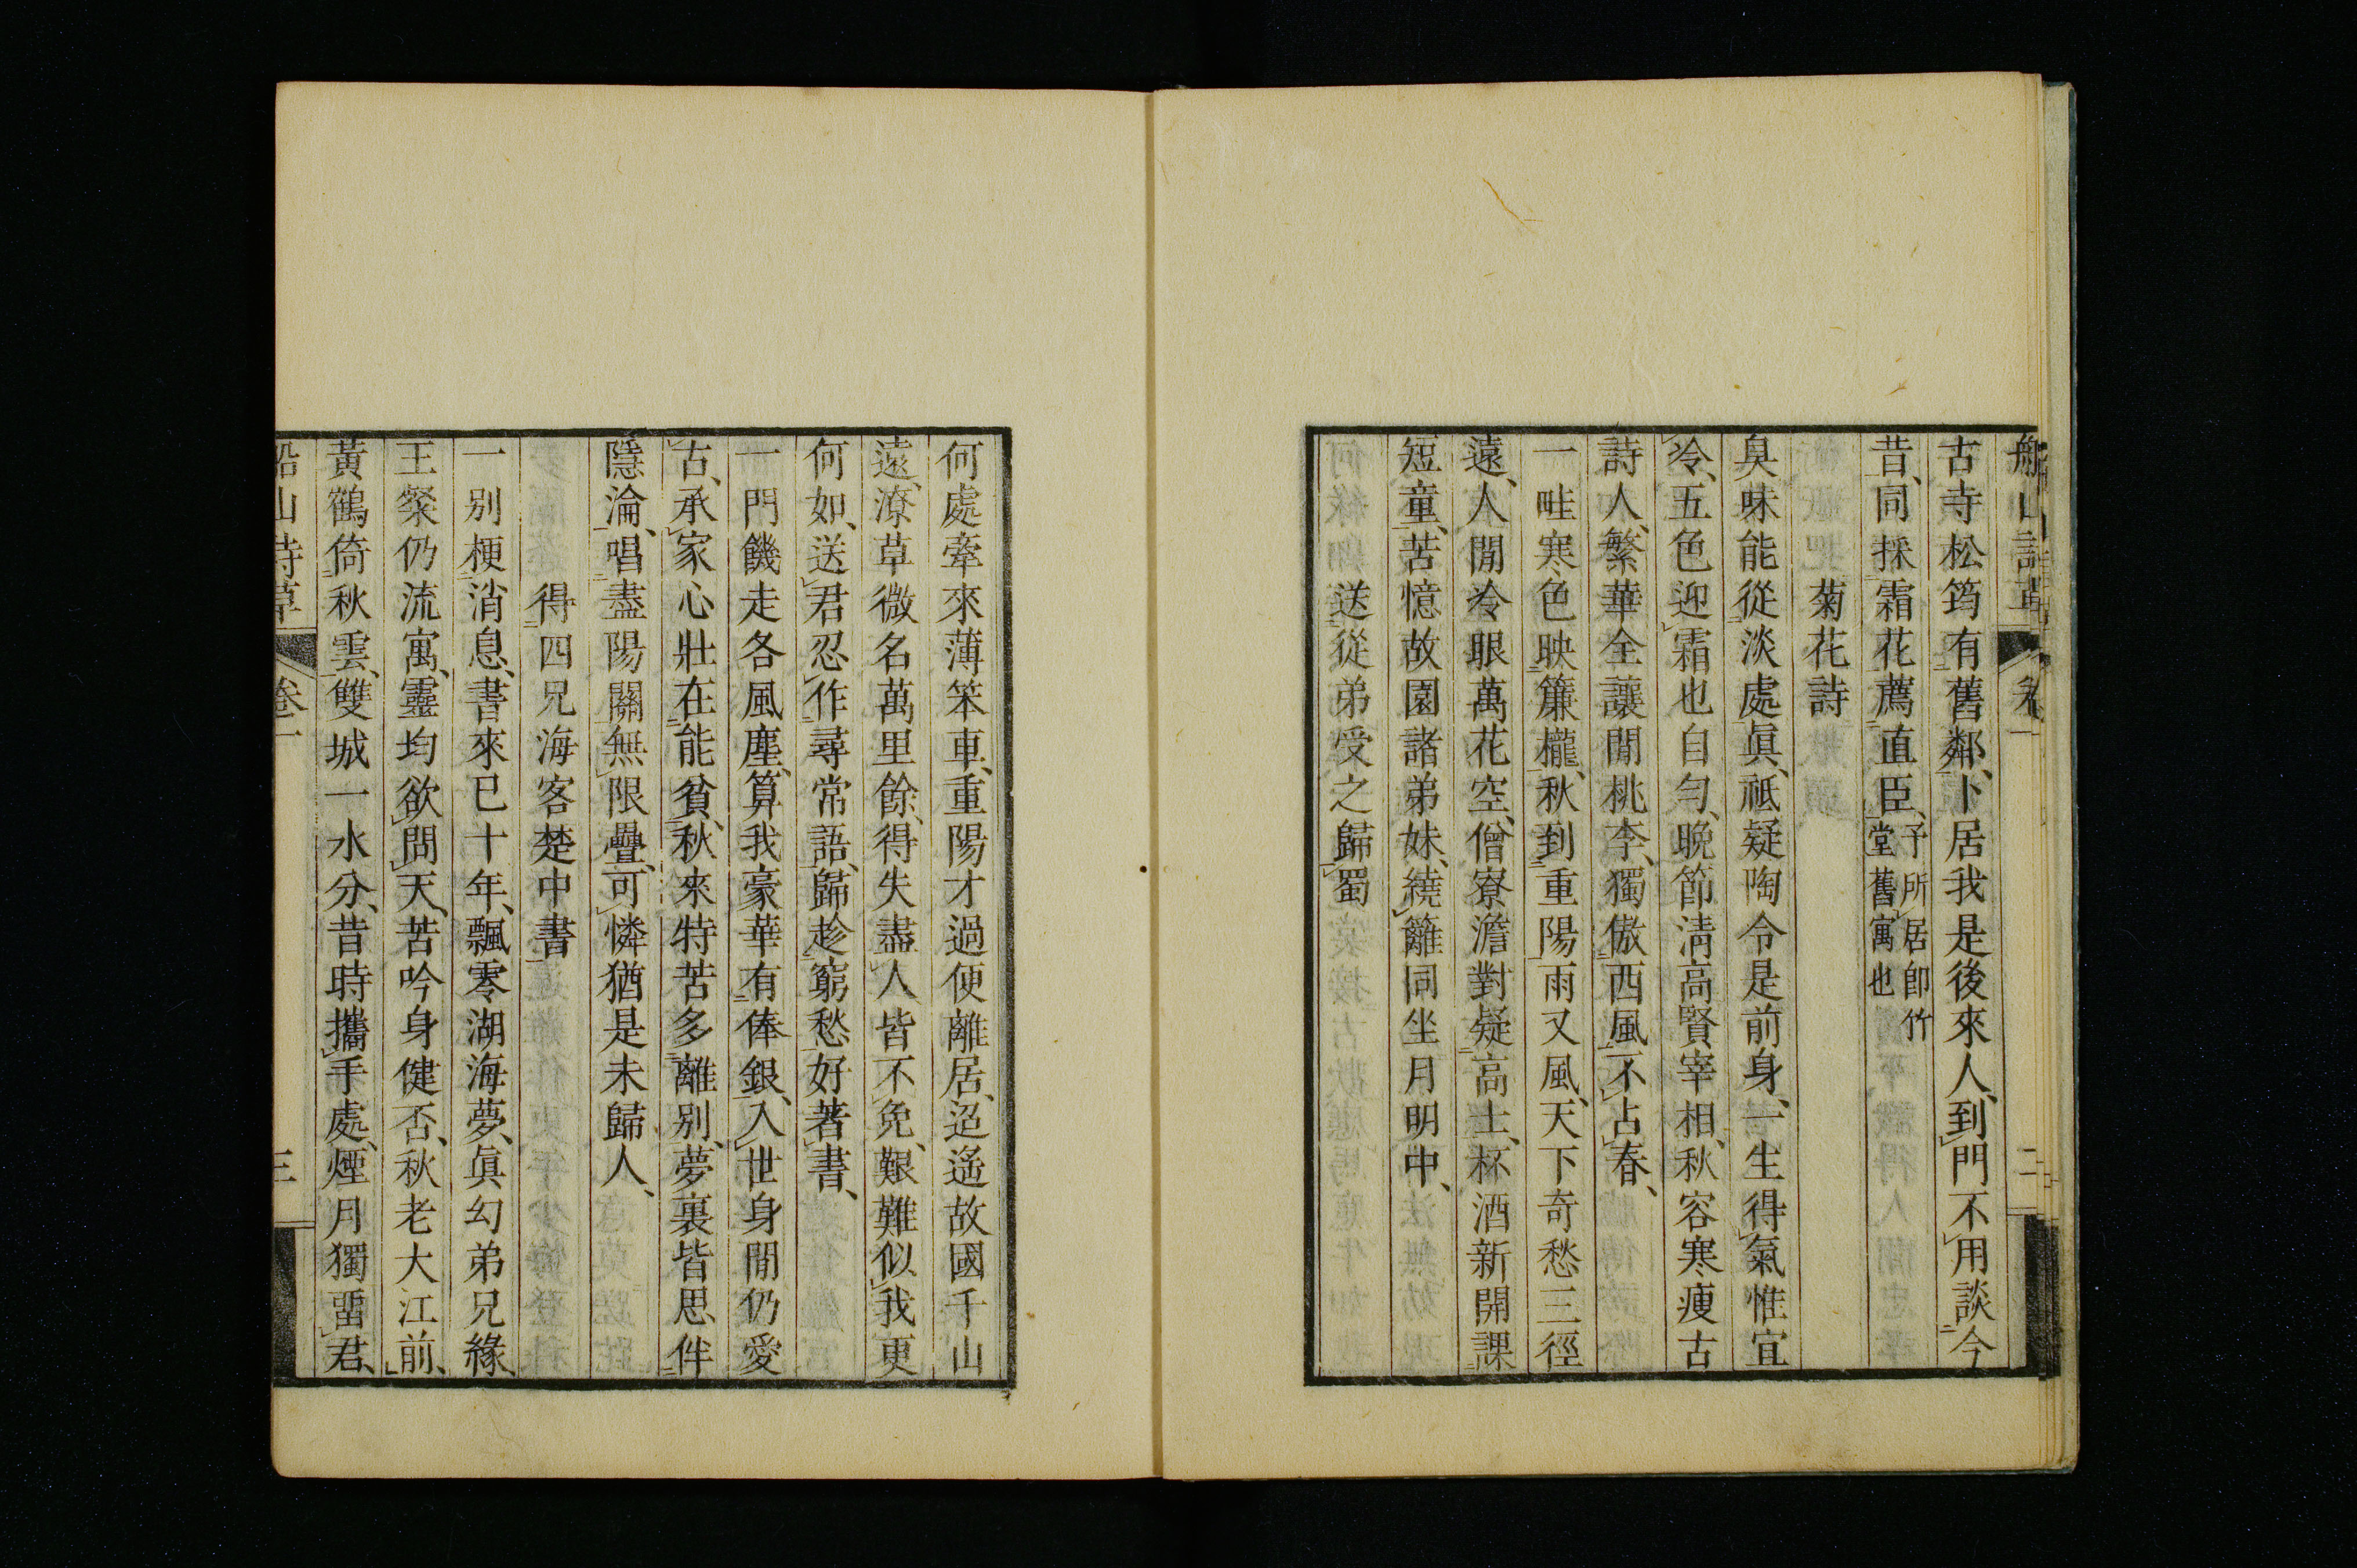 船山詩草 卷一 二
古寺松筠有舊鄰、卜居我是後來人、到門不用談今
昔、同採霜花薦直臣、予所居卽竹
堂舊寓也
菊花詩
臭味能從淡處眞、祇疑陶令是前身、一生得氣惟宜
冷、五色迎霜也白勻、晚節淸高賢宰相、秋容寒瘦古
詩人、繁華全讓閒桃李、獨傲西風不占春、
一畦寒色映簾櫳、秋到重陽雨又風、天下奇愁三徑
遠、人間冷眼萬花空、僧寮澹對疑高士、杯酒新開課
短童、苦憶故園諸弟妹、繞籬同坐月明中、
送從弟受之歸蜀
何處牽來薄笨車、重陽才過便離居、迢遙故國千山
遠、潦草微名萬里餘、得失盡人皆不免、艱難似我更
何如、送君忍作尋常語、歸趁窮愁好著書、
一門饑走各風塵、算我豪華有俸銀、入世身閒仍愛
古、承家心壯在能貧、秋來特苦多離别、夢裏皆思伴
隱淪、唱盡陽關無限疊、可憐猶是未歸人、
得四兄海客楚中書
一别梗消息、書來已十年、飄零湖海夢、眞幻弟兄緣、
王粲仍流寓、靈均欲問天、苦吟身健否、秋老大江前、
黃鶴倚秋雲、雙城一水分、昔時攜手處、煙月獨畱君、
船山詩草 卷一 三